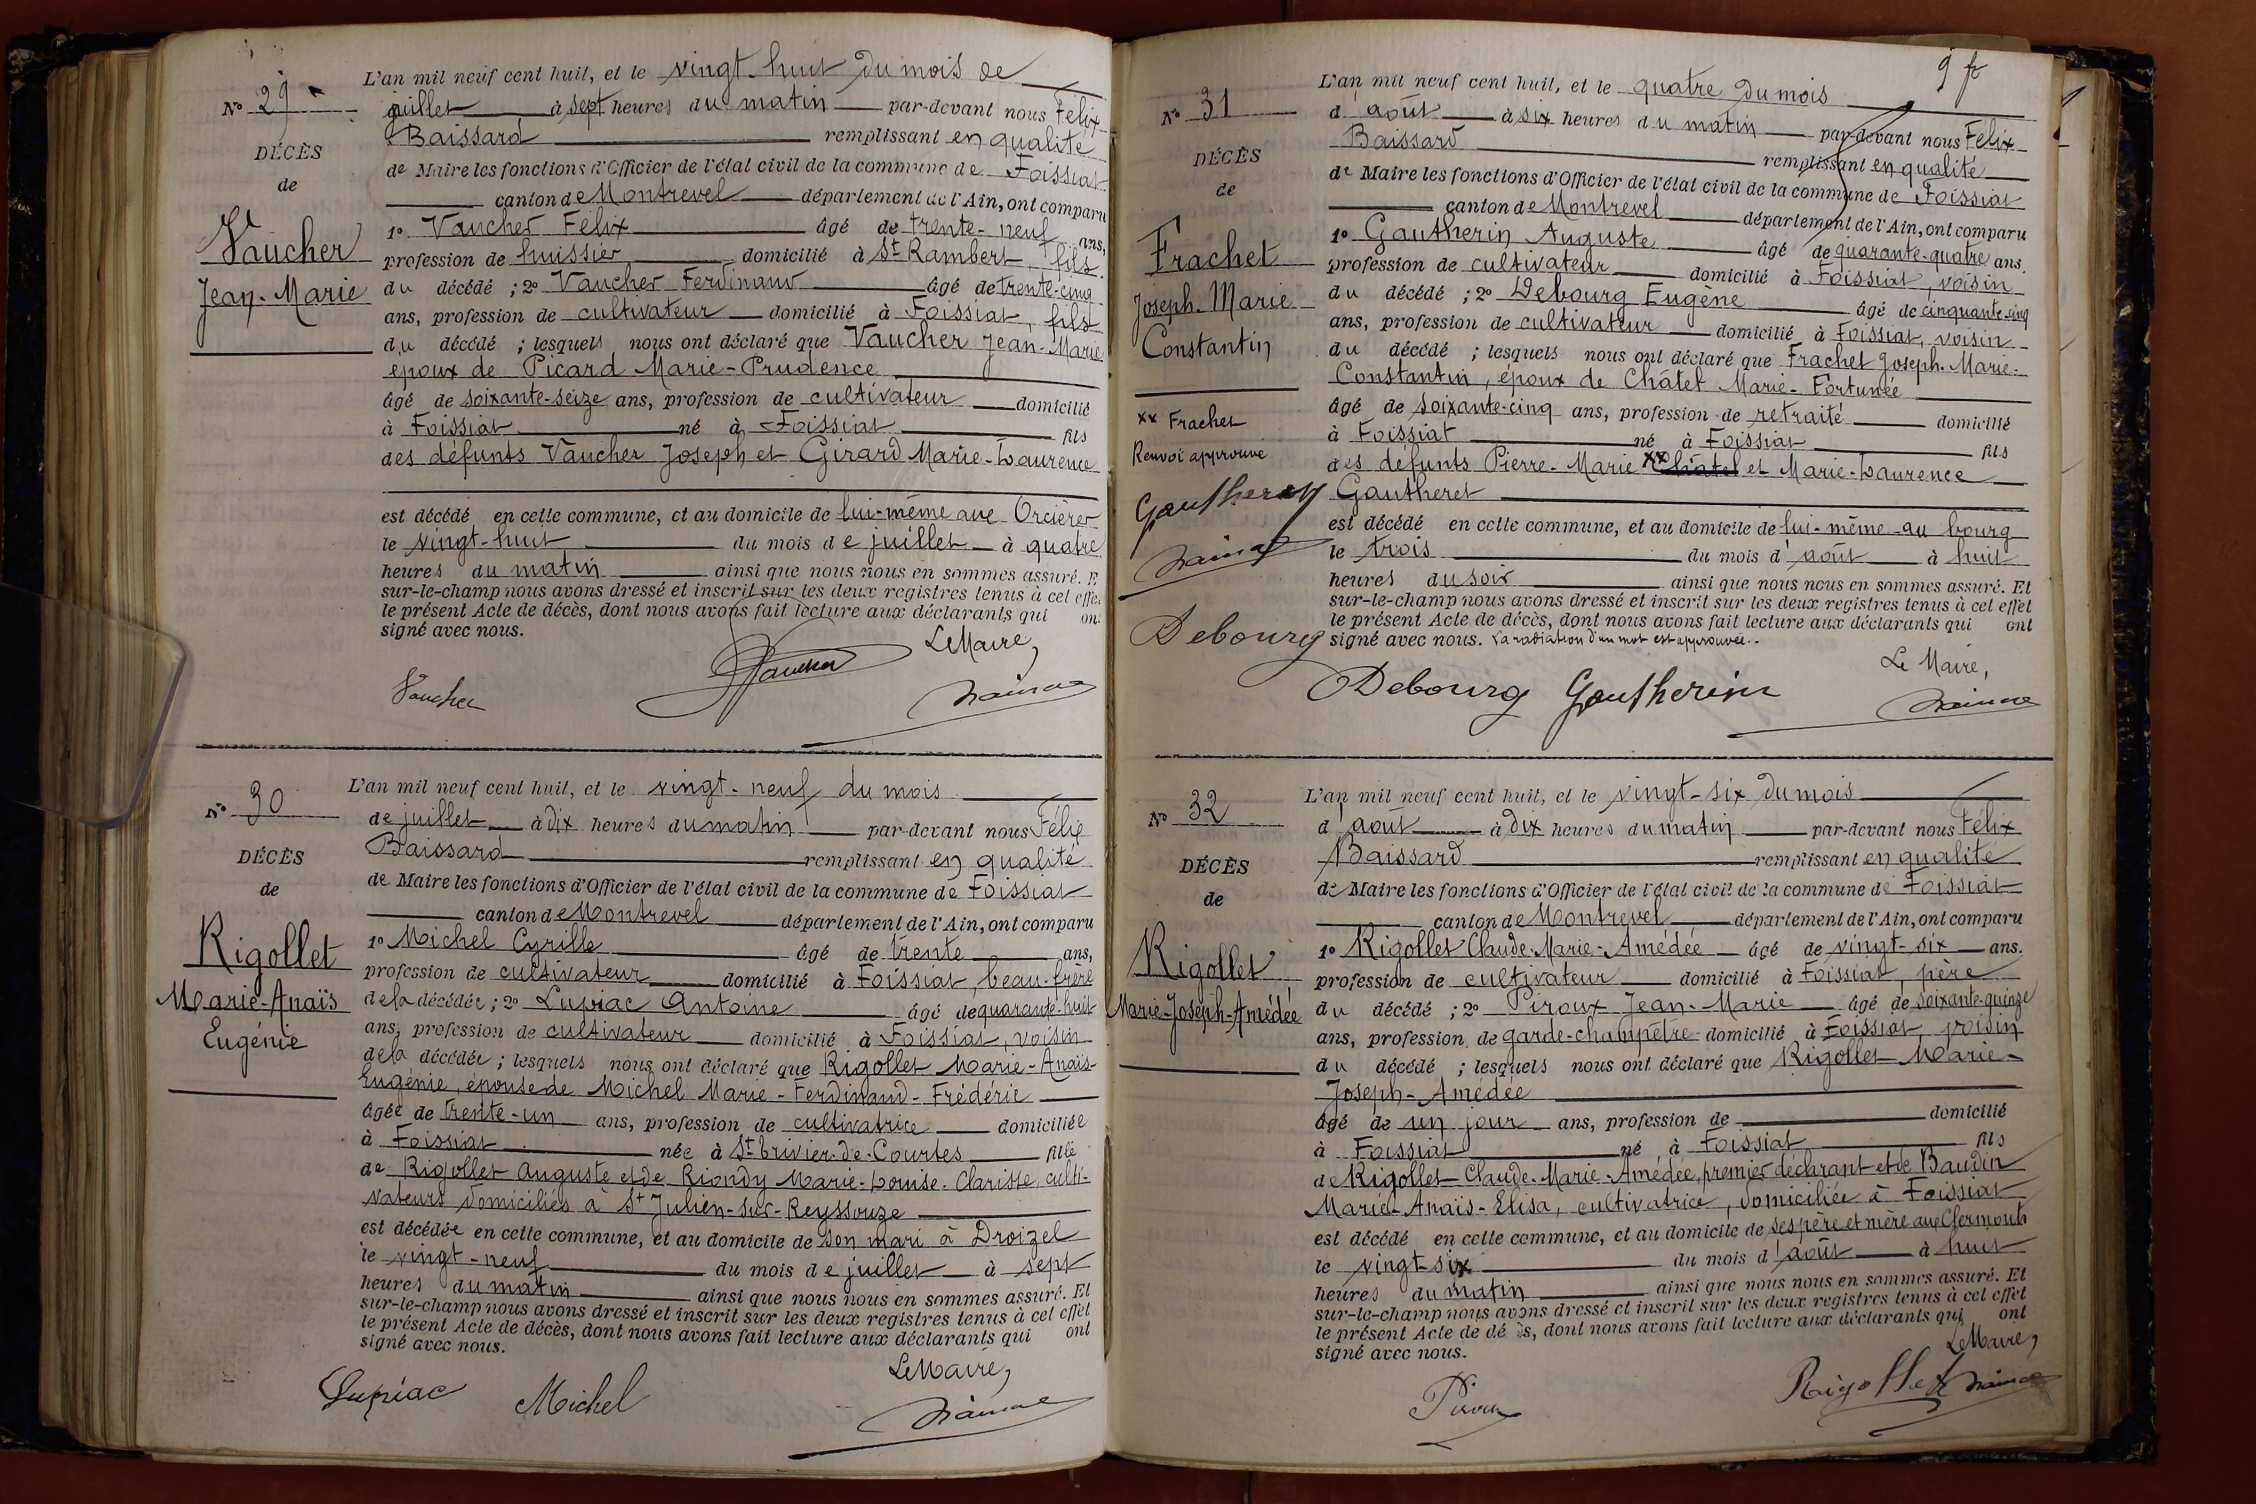 L'an mil neuf cent huit, et le vingt-huit du mois de
No 29
juillet à sept heures du matin par-devant nous Félix
Baissard remplissant en qualité
DÉCÈS
de Maire les fonctions d'Officier de l'état civil de la commune de Foissiat
de
canton de Montrevel département de l'Ain, ont comparu
Vaucher
1o Vaucher Félix âgé de trente-neuf ans,
profession de huissier domicilié à St Rambert, fils
Jean-Marie
du décédé ; 2o Vaucher Ferdinand âgé de trente-cinq
ans, profession de cultivateur domicilié à Foissiat, fils
du décédé ; lesquels nous ont déclaré que Vaucher Jean-Marie
époux de Picard Marie-Prudence
âgé de soixante-seize ans, profession de cultivateur domicilié
à Foissiat né à Foissiat fils
des défunts Vaucher Joseph et Girard Marie-Laurence
est décédé en cette commune, et au domicile de lui-même aux Orcières
le vingt-huit du mois de juillet à quatre
heures du matin ainsi que nous nous en sommes assuré. E
sur-le-champ nous avons dressé et inscrit sur les deux registres tenus à cet effe
le présent Acte de décès, dont nous avons fait lecture aux déclarants qui on
signé avec nous.
Le Maire,
Vaucher Vaucher
L'an mil neuf cent huit, et le vingt-neuf du mois
No 30
de juillet à dix heures du matin par-devant nous Félix
Baissard remplissant en qualité
DÉCÈS
de Maire les fonctions d'Officier de l'état civil de la commune de Foissiat
de
canton de Montrevel département de l'Ain, ont comparu
Rigollet
1o Michel Cyrille âgé de trente ans,
profession de cultivateur domicilié à Foissiat, beau-frère
Marie-Anaïs
de la décédée ; 2o Lupiac Antoine âgé de quarante-huit
Eugénie
ans, profession de cultivateur domicilié à Foissiat, voisin
de la décédée ; lesquels nous ont déclaré que Rigollet Marie-Anaïs-
Eugénie, épouse de Michel Marie-Ferdinand-Frédéric
âgée de trente-un ans, profession de cultivatrice domiciliée
à Foissiat née à St Trivier-de-Courtes fille
de Rigollet Auguste et de Riondy Marie-Louise-Clarisse, culti-
vateurs domiciliés à St Julien-sur-Reyssouze
est décédée en cette commune, et au domicile de son mari à Droizel
le vingt-neuf du mois de juillet à sept
heures du matin ainsi que nous nous en sommes assuré. Et
sur-le-champ nous avons dressé et inscrit sur les deux registres tenus à cet effet
le présent Acte de décès, dont nous avons fait lecture aux déclarants qui ont
signé avec nous.
Le Maire,
Lupiac Michel
9
L'an mil neuf cent huit, et le quatre du mois
No 31
d'août à six heures du matin par-devant nous Félix
Baissard remplissant en qualité
DÉCÈS
de Maire les fonctions d'Officier de l'état civil de la commune de Foissiat
de
canton de Montrevel département de l'Ain, ont comparu
Frachet
1o Gautherin Auguste âgé de quarante-quatre ans.
profession de cultivateur domicilié à Foissiat, voisin
Joseph-Marie
du décédé ; 2o Debourg Eugène âgé de cinquante-cinq
ans, profession de cultivateur domicilié à Foissiat, voisin
Constantin
du décédé ; lesquels nous ont déclaré que Frachet Joseph-Marie-
Constantin, époux de Châtel Marie-Fortunée
âgé de soixante-cinq ans, profession de retraité domicilié
xx Frachet
à Foissiat né à Foissiat fils
Renvoi approuvé
des défunts Pierre-Marie xx Châtel et Marie-Laurence
Gautherin
Gautheret
est décédé en cette commune, et au domicile de lui-même au bourg
le trois du mois d'août à huit
heures du soir ainsi que nous nous en sommes assuré. Et
sur-le-champ nous avons dressé et inscrit sur les deux registres tenus à cet effet
le présent Acte de décès, dont nous avons fait lecture aux déclarants qui ont
Debourg
signé avec nous. La radiation d'un mot est approuvée.
Le Maire,
Debourg Gautherin
L'an mil neuf cent huit, et le vingt-six du mois
No 32
d'août à dix heures du matin par-devant nous Félix
Baissard remplissant en qualité
DÉCÈS
de Maire les fonctions d'Officier de l'état civil de la commune de Foissiat
de
canton de Montrevel département de l'Ain, ont comparu
Rigollet
1o Rigollet Claude-Marie-Amédée âgé de vingt-six ans.
profession de cultivateur domicilié à Foissiat, père
Marie-Joseph-Amédée
du décédé ; 2o Piroux Jean-Marie âgé de soixante-quinze
ans, profession de garde-champêtre domicilié à Foissiat, voisin
du décédé ; lesquels nous ont déclaré que Rigollet Marie-
Joseph-Amédée
âgé de un jour ans, profession de domicilié
à Foissiat né à Foissiat fils
de Rigollet Claude-Marie-Amédée, premier déclarant et de Baudin
Marie-Anaïs-Elisa, cultivatrice, domiciliée à Foissiat
est décédé en cette commune, et au domicile de ses père et mère aux Clermonts
le vingt-six du mois d'août à huit
heures du matin ainsi que nous nous en sommes assuré. Et
sur-le-champ nous avons dressé et inscrit sur les deux registres tenus à cet effet
le présent Acte de dé ès, dont nous avons fait lecture aux déclarants qui ont
signé avec nous.
Le Maire,
Piroux Rigollet